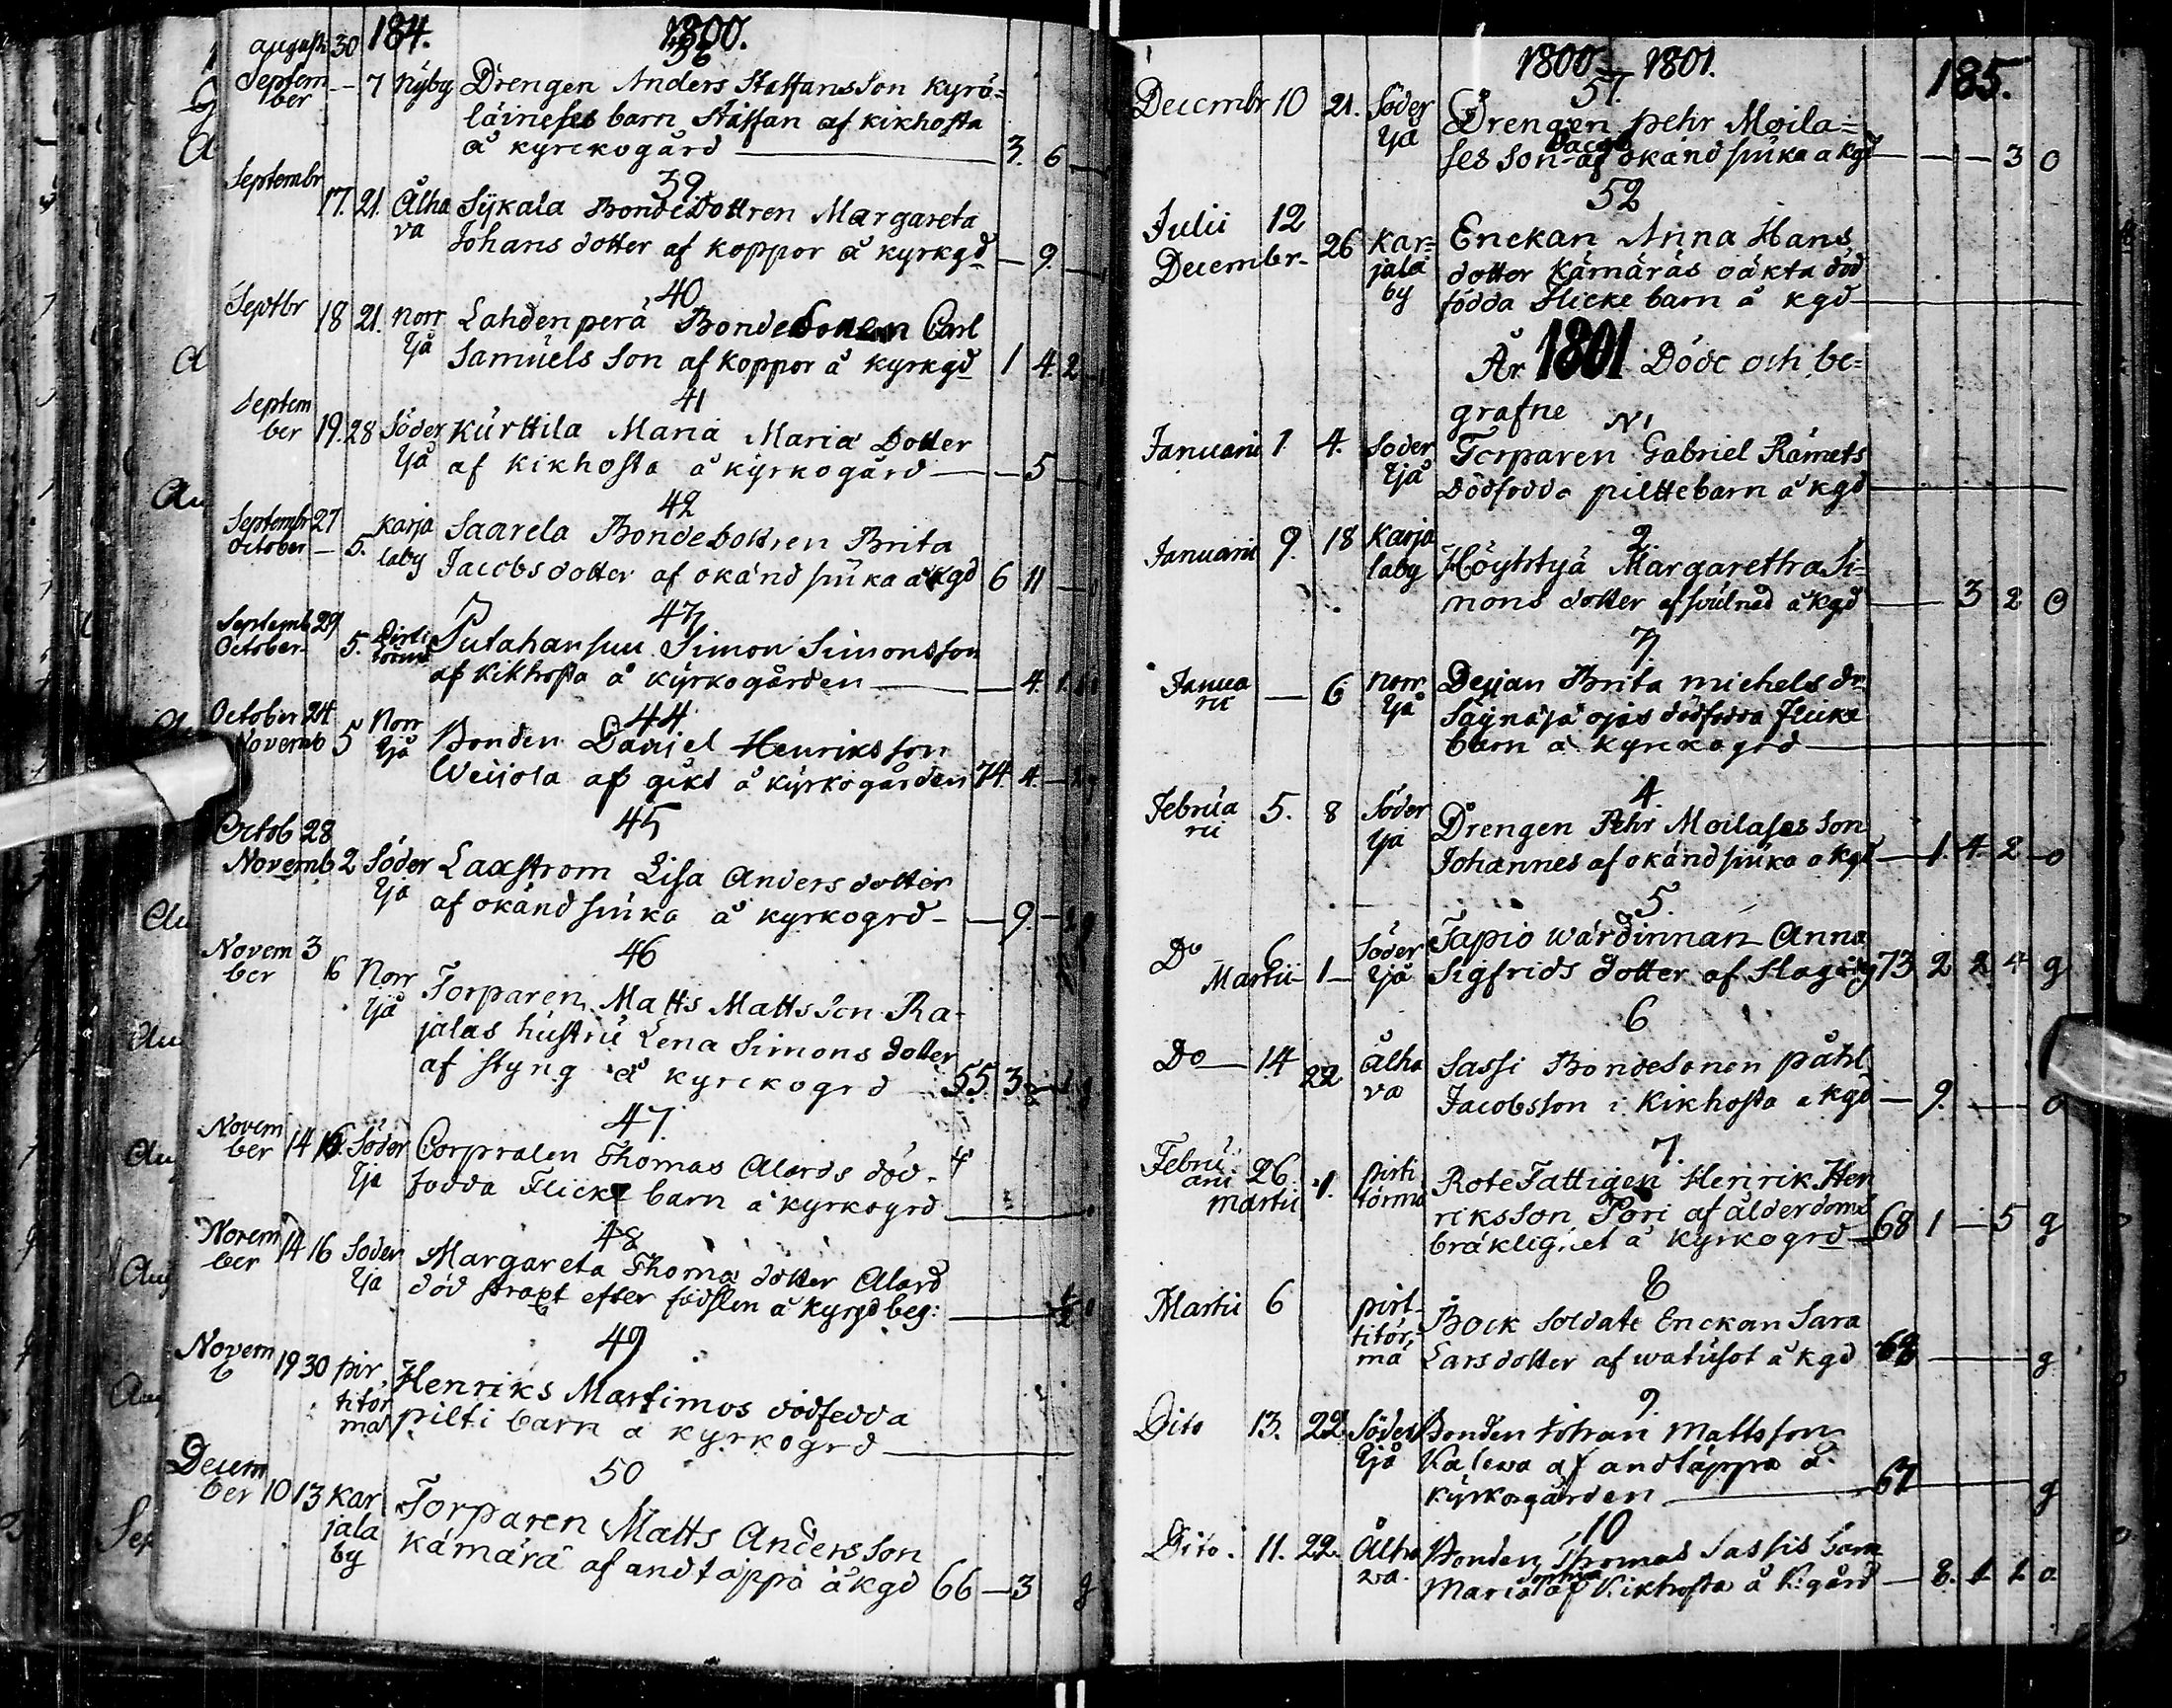 184. 1800.
38
august 30
Septem ber — 7 Nÿby Drengen Anders Staffans Son Kyrö=
läineses barn Staffan af kikhosta
å kyrckogård — 3. 6 —
39
Septembr 17. 21. Ålha va Sÿkala Bonde Dottren Margareta
Johans dotter af koppor å kyrkgd — 9. —
40
Septbr 18 21. Norr Ijå Lahdenperä Bonde Sonen Carl
Samuels Son af koppor å kyrkgd 1 4. 2
41
Septem ber 19. 28 Söder Ijå Kurttila Maria Maria Dotter
af kikhosta å kÿrkogård — 5
42
Septembr 27
October — 5. Karja laby Saarela Bonde Dottren Brita
Jacobs dotter af okänd siuka å kgd 6 11 —
43
Septemb 29
October 5. Pirti törmä Putahansuu Simon Simonsson
af kikhosta å kÿrkogården — 4. 1.
44
October 24
Novemb 5 Norr Ijå Bonden Daniel Henriksson
Weijola af gikt å kÿrkogården 74. 4. —
45
Octob 28
Novemb 2 Söder Ija Laxstrom Lisa Anders dotter
af okänd siuka å kyrkogrd — 9. —
46
Novem ber 3 16 Norr Ijå Torparen Matts Mattsson Ra-
jalas hustru Lena Simons dotter
af styng å kyrckogrd 55. 3
47.
Novem ber 14 16. Söder Ija Corpralen Thomas Alards död-
fodda Flicke barn å kyrkogrd
48
Novem ber 14 16 Soder Ija Margareta Thoma dotter Alard
död straxt efter födslen å kyrgd beg: — 1/2
49
Novem b 19 30 pir titör ma Henriks Martimos dödfedda
pilti barn a kyrkogrd
50
Decem ber 10 13 Kar jala by Torparen Matts Andersson
kämärä af andtäppa å kgd 66 — 3 g
1800 — 1801. 185.
51.
Decembr 10 21. Söder Ija Drengen pehr Moila=
Jacob
ses Son af okänd siuka a kgd — — — 3 0
52
Julii 12
Decembr 26 Kar= jala by Enckan Anna Hans
dotter Kämäräs oäkta död
födda Flicke barn å kgd
År 1801 Döde och be=
grafne
N1
Januarii 1. 4. Soder Ijå Torparen Gabriel Rämets
Dödfodda piltte barn å kgd
2.
Januarii 9. 18 Karja laby Höyhtyä Margarettra Si=
mons dotter af svulnad å kgd — 3 2 0
3
Janua rii — 6 Norr Ijå Deijan Brita michels dr
Säynäjä ojas dödfodda flicke
barn a kyrckogrd
4.
Februa rii 5. 8 Söder Ija Drengen Pehr Moilases Son
Johannes af okänd siuka a kgd — 1. 4. 2 — 0
5.
Do 6
Martii 1 — Söder Ijå Tapio wärdinnan Anna
Sigfrids dotter af Slag 73 2 2 4 g
6
Do — 14 22 Ålha va Sassi Bonde Sonen påhl
Jacobsson i kikhosta a kgd — 9. — 0
7.
Febru arii 26
martii 1. pirti törmä Rote Fattigen Henrik Hen
riksson Pori af ålderdoms
bräklighet å kyrkogrd 68 1 — 5 g
8
Martii 6 pirt- titör- mä Bock Soldate Enckan Sara
Lars dotter af watusot å kgd 68 — g
9.
Dito 13. 22 Söder Ijå Bonden Johan Mattsson
Kalewa af andtäppa å
kÿrkogården — 67 — g
10
Dito. 11. 22. Ålha wa. Bonden Thomas Sassis barn
Sophia
Maria af Kikhosta å K:gård — 8. 1 1. 0